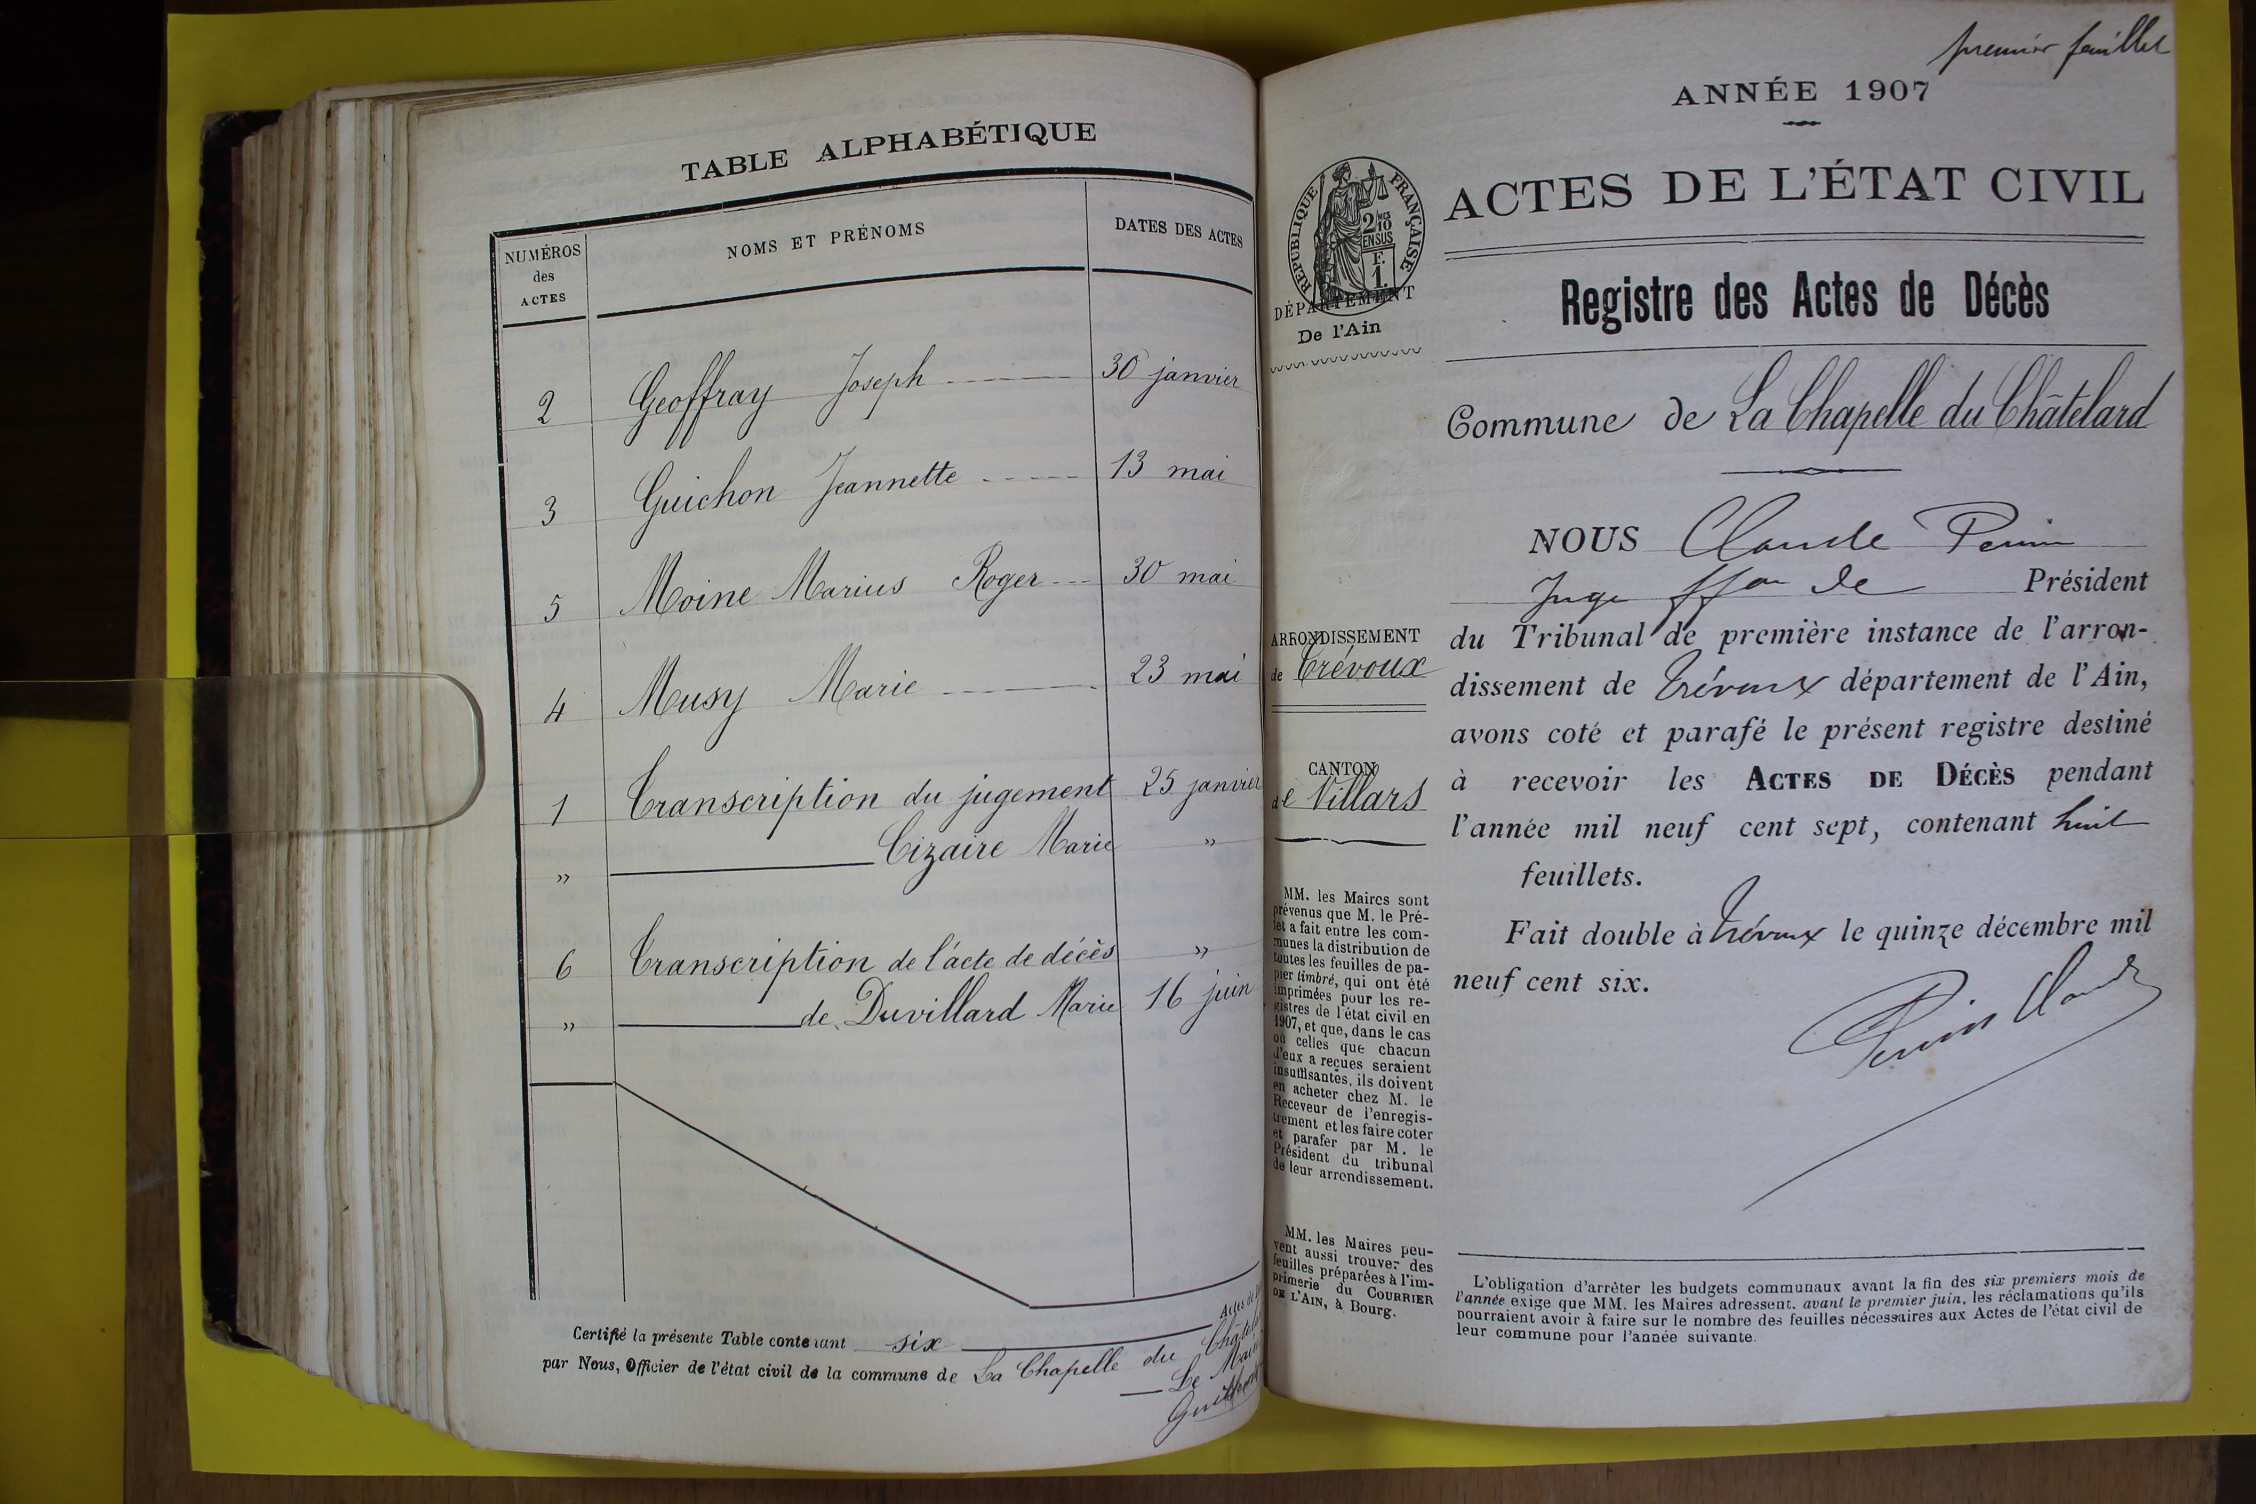 TABLE ALPHABÉTIQUE
NUMÉROS des ACTES
NOMS ET PRÉNOMS
DATES DES ACTES
2 Geoffray Joseph 30 janvier
3 Guichon Jeannette 13 mai
5 Moine Marius Roger 30 mai
4 Musy Marie 23 mai
1 Transcription du jugement 25 janvier
" Cizaire Marie "
6 Transcription de l'acte de décès "
" de Duvillard Marie 16 juin
Certifié la présente Table contenant six Actes de
par Nous, Officier de l'état civil de la commune de La Chapelle du
Le
premier feuillet
ANNÉE 1907
ACTES DE L'ÉTAT CIVIL
RÉPUBLIQUE FRANÇAISE
2/10 MES
EN SUS
F.
1.
DÉPARTEMENT
De l'Ain
Registre des Actes de Décès
Commune de La Chapelle du Châtelard
ARRONDISSEMENT
de Trévoux
CANTON
de Villars
MM. les Maires sont
prévenus que M. le Pré-
fet a fait entre les com-
munes la distribution de
toutes les feuilles de pa-
pier timbré, qui ont été
imprimées pour les re-
gistres de l'état civil en
1907, et que, dans le cas
où celles que chacun
d'eux a reçues seraient
insuffisantes, ils doivent
en acheter chez M. le
Receveur de l'enregis-
trement et les faire coter
et parafer par M. le
Président du tribunal
de leur arrondissement.
MM. les Maires peu-
vent aussi trouver des
feuilles préparées à l'im-
primerie du COURRIER
DE L'AIN, à Bourg.
NOUS Claude Perrin
Juge ffon de Président
du Tribunal de première instance de l'arron-
dissement de Trévoux département de l'Ain,
avons coté et parafé le présent registre destiné
à recevoir les ACTES DE DÉCÈS pendant
l'année mil neuf cent sept, contenant huit
feuillets.
Fait double à Trévoux le quinze décembre mil
neuf cent six.
Perrin Claude
L'obligation d'arrêter les budgets communaux avant la fin des six premiers mois de
l'année exige que MM. les Maires adressent, avant le premier juin, les réclamations qu'ils
pourraient avoir à faire sur le nombre des feuilles nécessaires aux Actes de l'état civil de
leur commune pour l'année suivante.